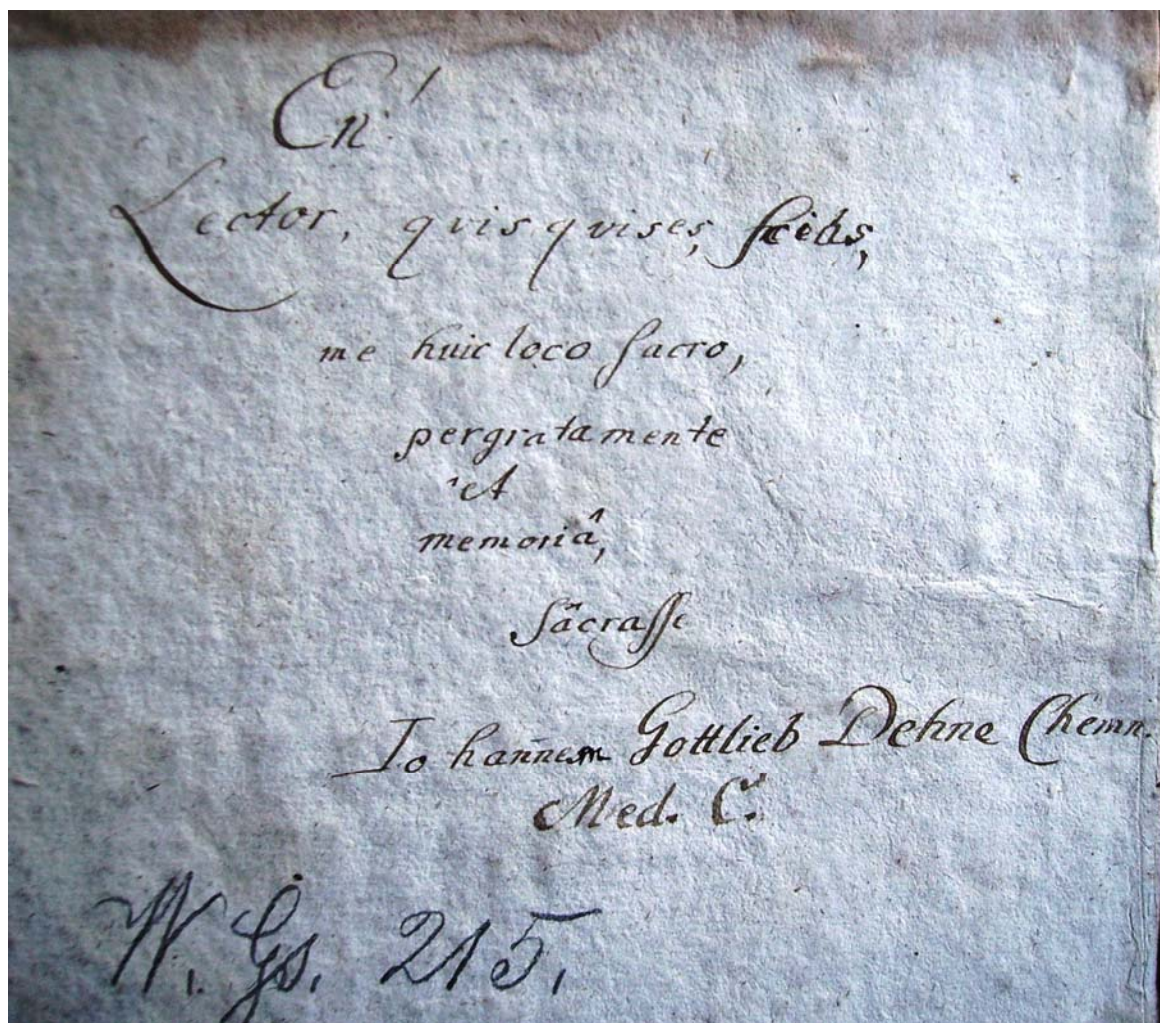 En!
Lector, qvisqvises, scias,
me huic loco sacro,
pergratamente
et
memoriâ,
sacrasse
Iohannem Gottlieb Dehne Chemn.
Med. C.
W. Gs. 215.